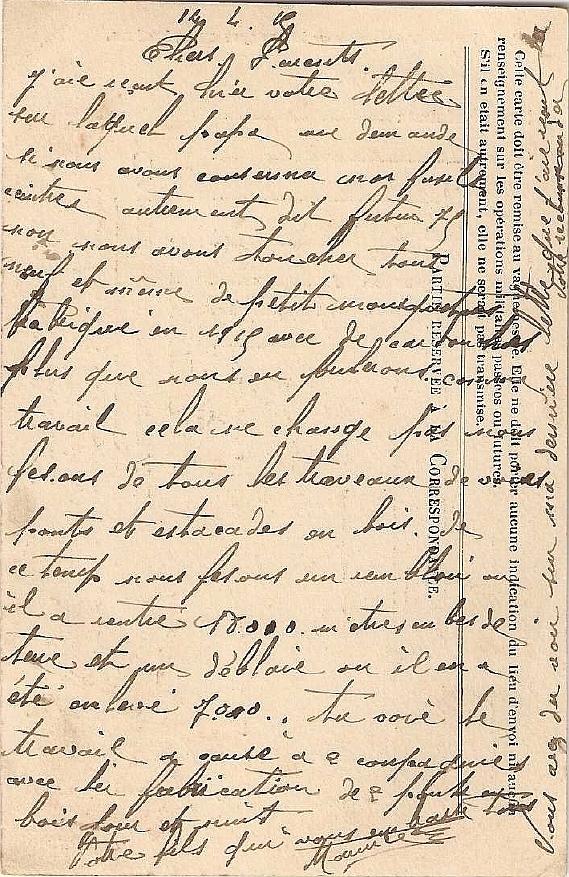 12. 4. 15
Chers Parents.
j'aie reçut hier votre lettre
sur laquel papa me demande
si nous avons conserver nos fusils
autrement dit fusin 75
non nous avons toucher tout
neuf et même de petit mousquetons
fabriqué en 1915 avec de cartouches
plus que nous en pouvons comme
travail cela ne change pas nous
fesons de tous les travaux de voies
ponts et estacades en bois. de
ce temp nous fesons un remblai ou
il a rentré 18.000. mètres cubes de
terre et un déblaie ou il en a
été enlevé 7.000. le
travail a 2 compagnies
avec la fabrication de 2 ponts en
bois jour et nuit
Votre fils qui vous embrasse tous
Maurice
Vous avez du voir sur ma dernière lettre que j'aie reçut la
votre recommandée
Cette carte doit être remise au vaguemestre. Elle ne doit porter aucune indication du lieu d'envoi ni aucun
renseignement sur les opérations militaires passées ou futures.
S'il en était autrement, elle ne serait pas transmise.
PARTIE RÉSERVÉE A LA CORRESPONDANCE.